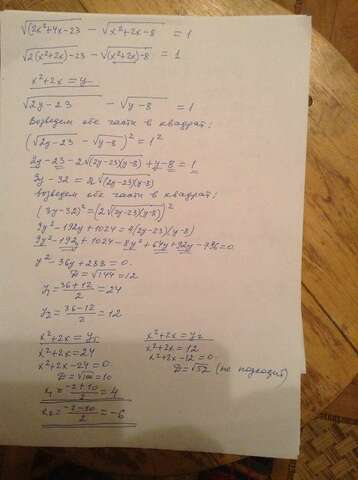 √(2x²+4x-23 - √x²+2x-8 = 1
√2(x²+2x)-23 - √(x²+2x)-8 = 1
x²+2x = y
√2y-23 - √y-8 = 1
Возведем обе части в квадрат:
(√2y-23 - √y-8)² = 1²
2y-23-2√(2y-23)(y-8)+y-8=1
3y-32=2√(2y-23)(y-8)
возведем обе части в квадрат:
(3y-32)²=(2√(2y-23)(y-8))²
9y²-192y+1024=4(2y-23)(y-8)
9y²-192y+1024-8y²+64y+92y-736=0
y²-36y+288=0
D=√144=12
y₁=36+12/2=24
y₂=36-12/2=12
x²+2x=y₁ x²+2x=y₂
x²+2x=24 x²+2x=12
x²+2x-24=0 x²+2x-12=0
D=√100=10 D=√52 (не подходит)
x₁=-2+10/2=4
x₂=-2-10/2=-6